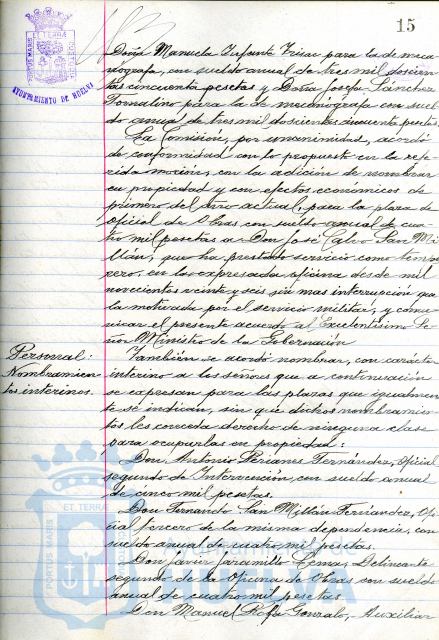 15
PORTUS MARIS
ET TERRAE
CUSTODIA
AYUNTAMIENTO DE HUELVA
Doña Manuela Infante Trisac para la de meca-
nógrafa, con sueldo anual de tres mil doscien-
tas cincuenta pesetas y Doña Josefa Sánchez
Tornalino para la de mecanógrafa con suel-
do anual de tres mil doscientas cincuenta pesetas.
La Comisión, por unanimidad, acordó
de conformidad con lo propuesto en la refe-
rida moción, con la adición de nombrar
en propiedad y con efectos económicos de
primero del año actual, para la plaza de
Oficial de Obras con sueldo anual de cua-
tro mil pesetas a Don José Calvo San Mi-
llán, que ha prestado servicio como temp
pero, en la expresada oficina desde mil
novecientos veinte y seis sin mas interrupción que
la motivada por el servicio militar, y comu-
nicar el presente acuerdo al Excelentísimo Se-
ñor Ministro de la Gobernación
Personal:
Nombramien-
tos interinos.
También se acordó nombrar, con carácter
interino a los señores que a continuación
se expresan para las plazas que igualmen-
te se indican, sin que dichos nombramien-
tos les conceda derecho de ninguna clase
para ocuparlas en propiedad:
Don Antonio Perianes Fernández, Oficial
segundo de Intervención, con sueldo anual
de cinco mil pesetas.
Don Fernando San Millán Fernández, Ofi-
cial tercero de la misma dependencia, con
sueldo anual de cuatro mil pesetas.
Don Javier Jaramillo Lema, Delineante
segundo de la Oficina de Obras con sueldo
anual de cuatro mil pesetas
Don Manuel Rofa Gonzalo, Auxiliar
PORTUS MARIS
ET TERRAE
Ayuntamiento de
HUELVA